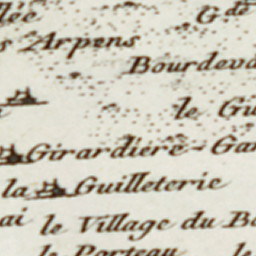 lée G.de
s Arpens
Bourdeva
le Gu
Girardiere - Gar
la Guilleterie
ai le Village du Bo
le Porteau le